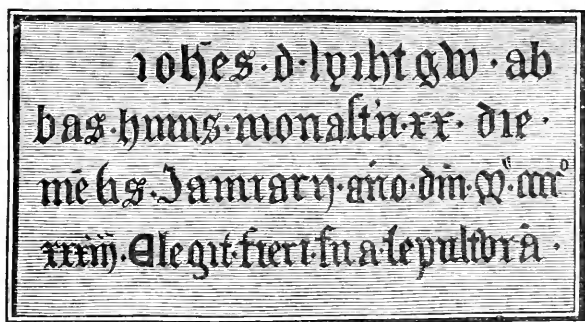 iohēs·d·lychtgw·ab
bas·huius·monastn·xx·die·
mēsis·Januarij·āno·dm̄·m°·cccc°
xxxiij·Elegit·fieri·sua·sepulturā·